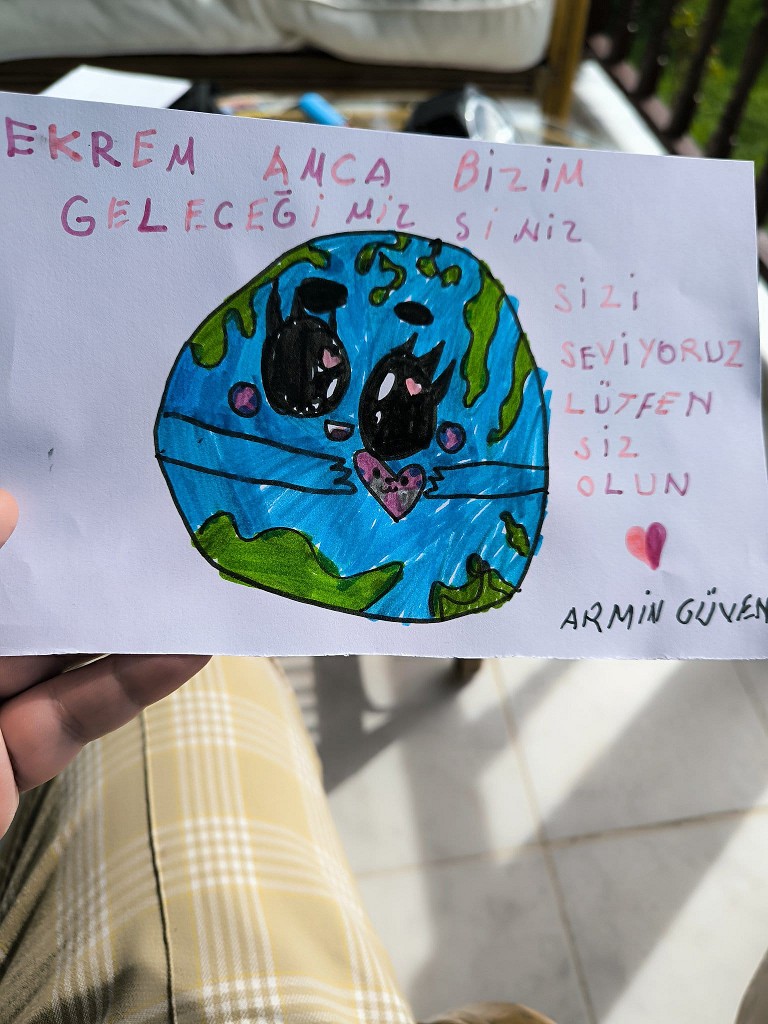 EKREM AMCA BİZİM
GELECEĞİMİZ SİNİZ
SİZİ
SEVİYORUZ
LÜTFEN
SİZ
OLUN
ARMİN GÜVEN